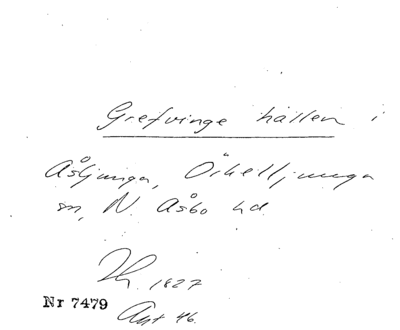 Grefvinge hällen i
Åsljunga, Örkelljunga
sn, N. Åsbo hd.
1827
Nr 7479
Ant 46.